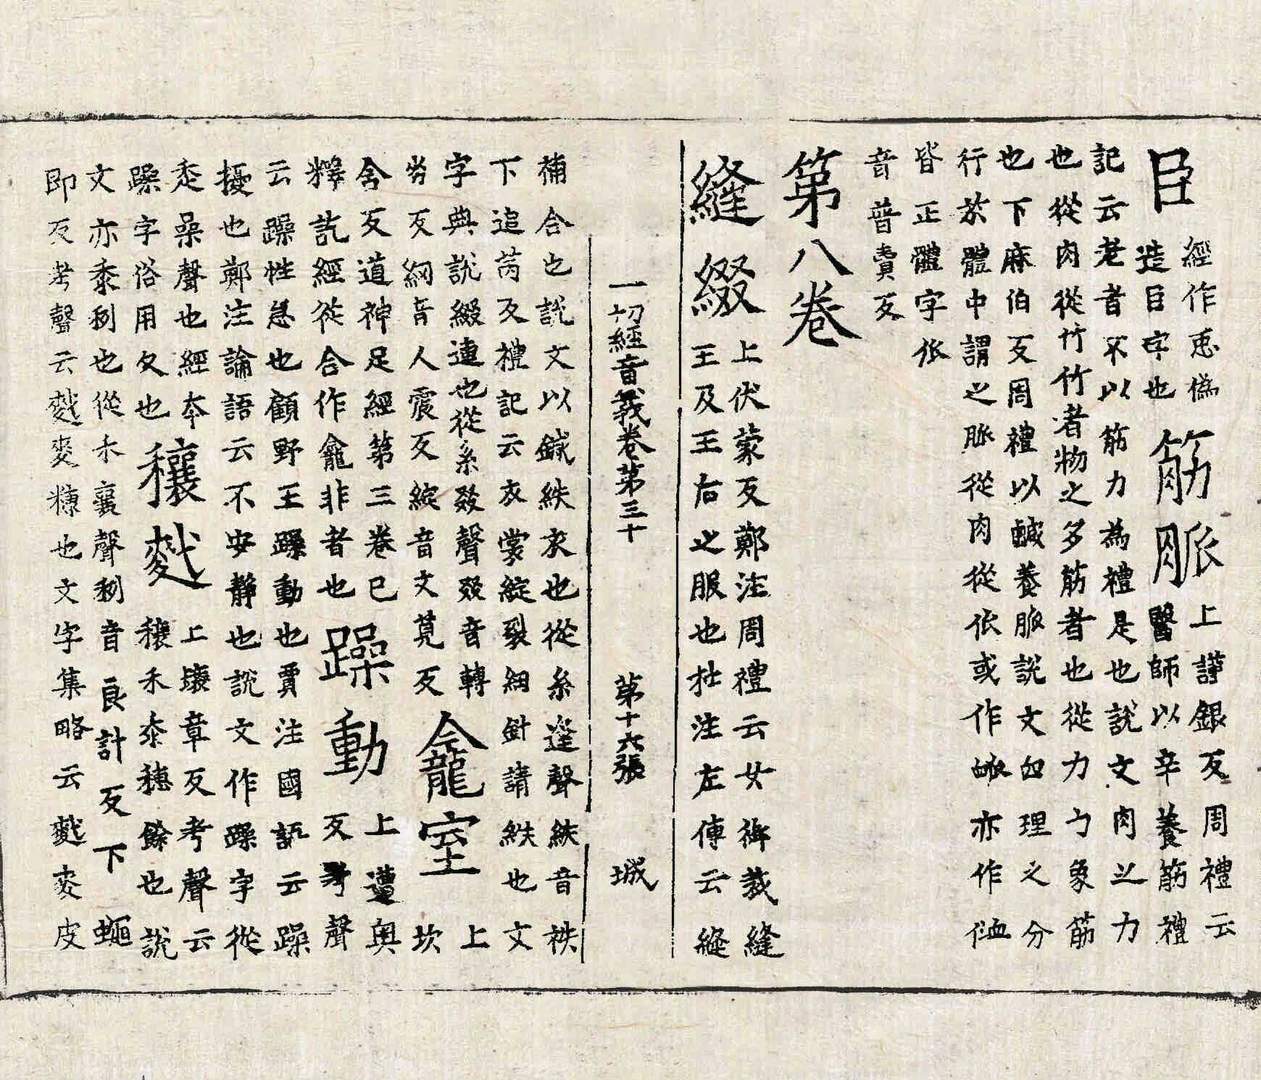 臣經作𢙣為
造臣字也
筋脈上謹銀反周禮云
醫師以辛養筋禮
記云老者不以筋力為禮是也說文肉之力
也從肉從竹竹者物之多筋者也從力力象筋
也下麻伯反周禮以鹹養脈說文血理之分
行於體中謂之脈從肉從𠂢或作衇亦作䘑
皆正體字𠂢
音普賣反
第八卷
縫綴上伏蒙反鄭注周禮云女御裁縫
王及王后之服也杜注左傳云縫
一切經音義卷第三十 第十六張 城
補合也說文以鍼紩衣也從糸逢聲紩音秩
下追芮反禮記云衣裳綻裂紉針請紩也文
字典說綴連也從糸叕聲叕音轉
劣反紉音人震反綻音文莧反
龕室上
坎
含反道神足經第三卷已
釋訖經從合作龕非者也
躁動上遭奧
反考聲
云躁性急也顧野王躁動也賈注國語云躁
擾也鄭注論語云不安靜也說文作躁字從
走喿聲也經本
躁字俗用久也
穰䴬上壤章反考聲云
穰禾黍穗餘也說
文亦黍𥝢也從禾襄聲𥝢音良計反下蠅
即反考聲云䴬麥糠也文字集略云䴬麥皮